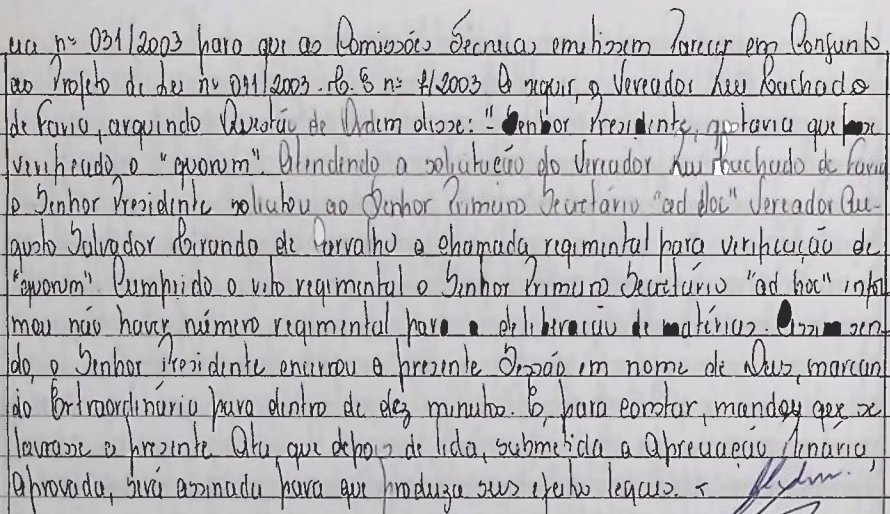 cia nº 031/2003 para que as Comissões Técnicas emetissem Parecer em Conjunto
ao Projeto de Lei nº 011/2003. A seguir, o Vereador Machado
de Faria, arguindo Questão de Ordem disse: "Senhor Presidente, gostaria que fosse
verificado o "quorum". Atendendo a solicitação do Vereador Machado de Faria
o Senhor Presidente solicitou ao Senhor Primeiro Secretário "ad hoc" Vereador Au-
gusto Salvador Miranda de Carvalho a chamada regimental para verificação de
"quorum". Cumprido o rito regimental o Senhor Primeiro Secretário "ad hoc" infor
mou não haver número regimental para a deliberação de matérias. Assim sen-
do, o Senhor Presidente encerrou a presente Sessão em nome de Deus, marcan
do Extraordinária para dentro de dez minutos. E, para constar, mandou que se
lavrasse a presente Ata, que depois de lida, submetida a apreciação Plenária,
aprovada, será assinada para que produza seus efeitos legais.